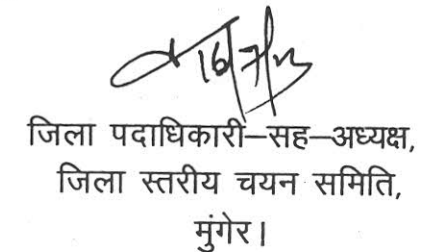 16/7/23
जिला पदाधिकारी–सह–अध्यक्ष,
जिला स्तरीय चयन समिति,
मुंगेर।